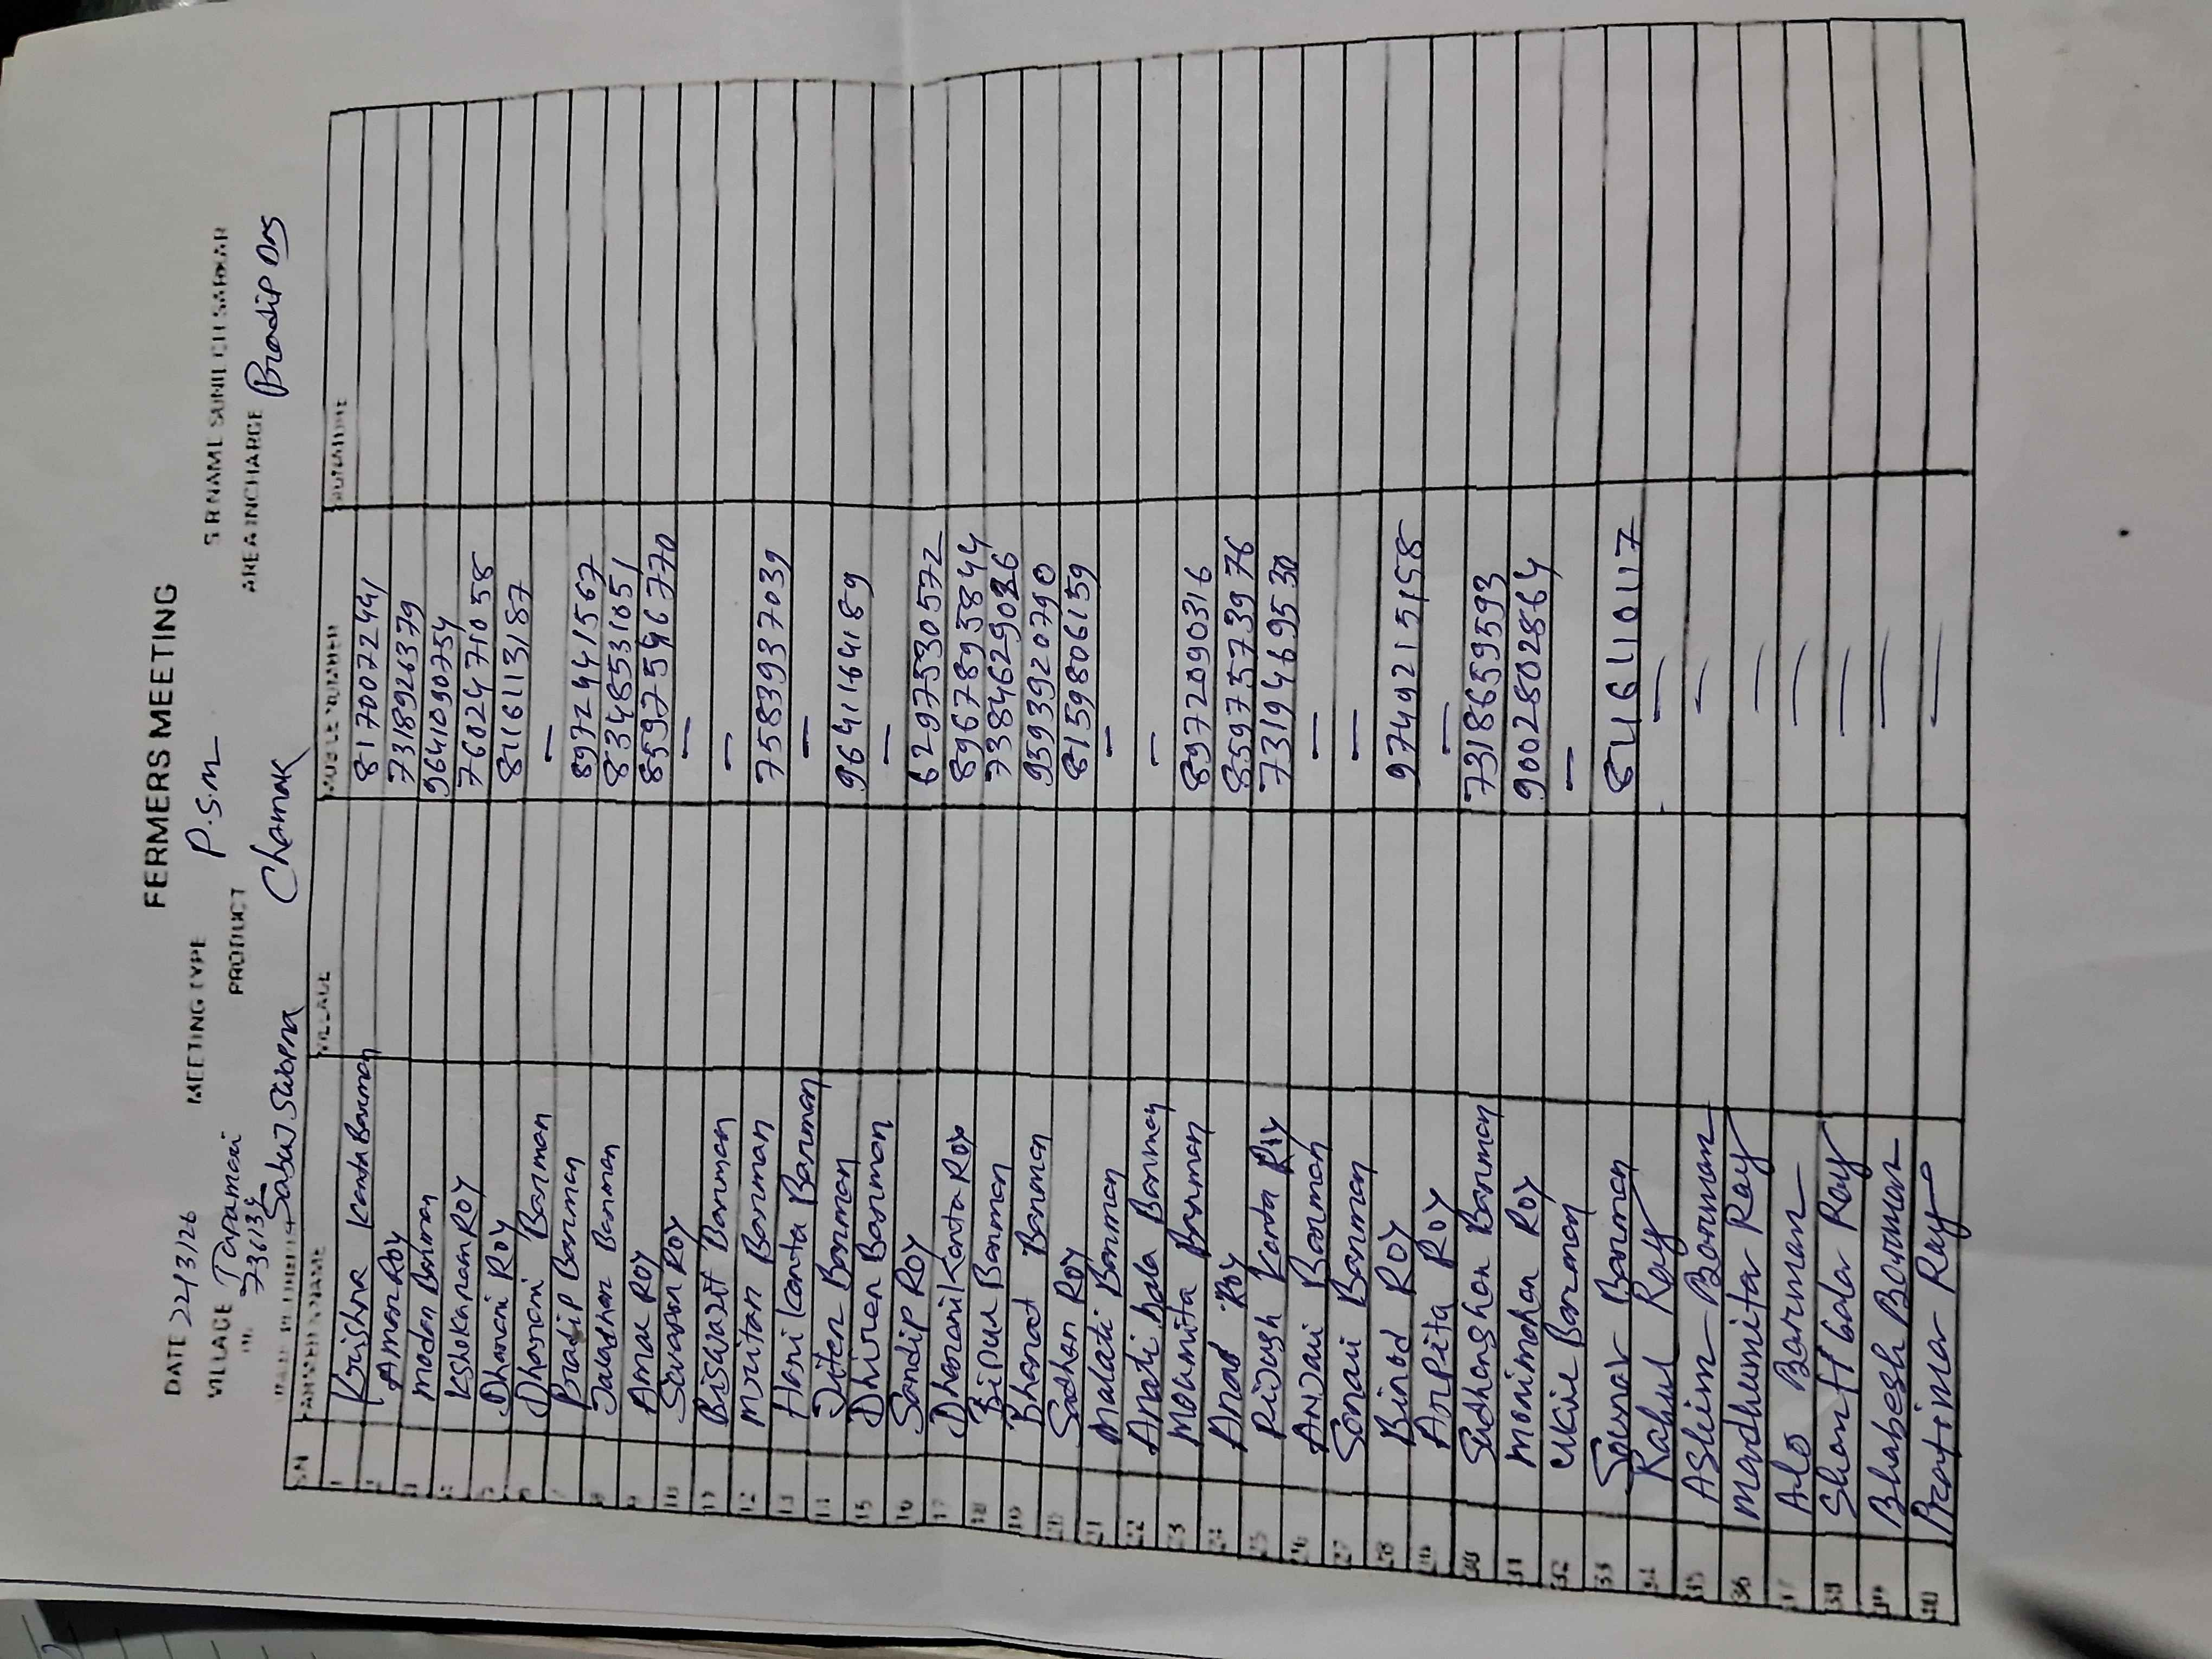 FERMERS MEETING
DATE 22/3/26 MEETING TYPE P.S.M S R NAME SUNIL CH SARKAR
VILLAGE Tapamari PRODUCT Chamak AREA INCHARGE Pradip Das
736134
Sabuj Swapna
SN FARMER NAME VILLAGE MOBILE NUMBER SIGNATURE
1 Krishna Kanta Barman 8170072441
2 Amar Roy 7318926379
3 Madan Barman 9641090754
4 Kshokanam Roy 7602471058
5 Dhamani Roy 8116113187
6 Dhamani Barman —
7 Pradip Barman 8972441567
8 Jaladhar Barman 8348531051
9 Amal Roy 8597546770
10 Swapan Roy —
11 Biswajit Barman —
12 Mritan Barman 7583937039
13 Hari Kanta Barman —
14 Jiten Barman 9641164189
15 Dhiren Barman —
16 Sandip Roy 6297530572
17 Dharani Kanta Roy 8967895844
18 Bipul Barman 7384629026
19 Bharat Barman 9593920790
20 Sadhan Roy 8159806159
21 Malati Barman —
22 Anadi bala Barman —
23 Moumita Barman 8972090316
24 Anab Roy 8597573976
25 Pijush Kanta Roy 7319469530
26 Anjali Barman —
27 Sonali Barman —
28 Binod Roy 9749215158
29 Arpita Roy —
30 Sudhangshan Barman 7318659593
31 Monimohan Roy 9002802864
32 Ukil Barman —
33 Barman 8116110117
34 Rahul Roy —
35 Ashim Barman —
36 Madhumita Roy —
37 Alo Barman —
38 Shanti bala Roy —
39 Bhabesh Barman —
40 Pratima Roy —